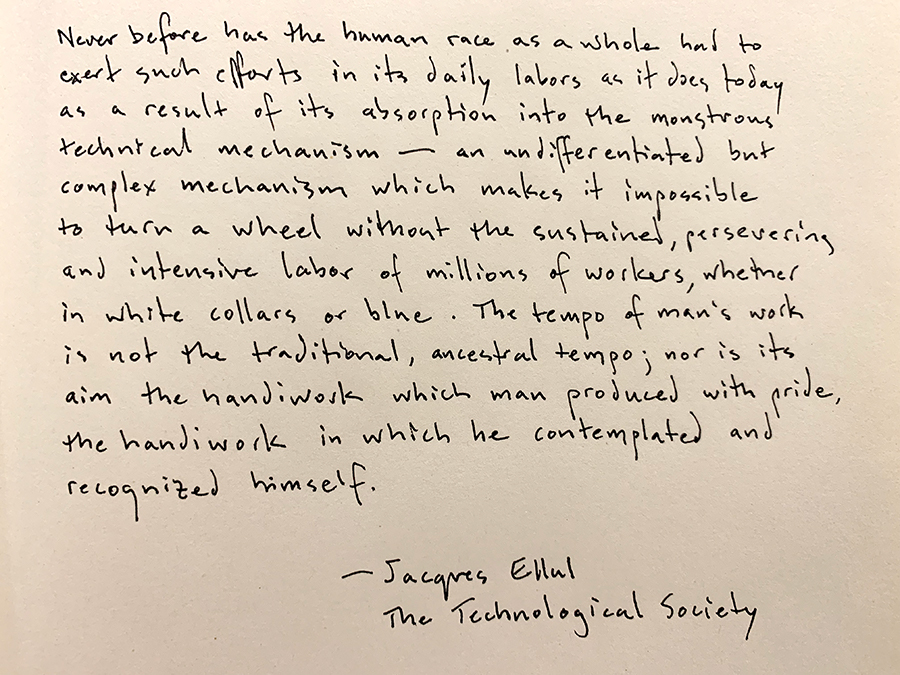 Never before has the human race as a whole had to
exert such efforts in its daily labors as it does today
as a result of its absorption into the monstrous
technical mechanism — an undifferentiated but
complex mechanism which makes it impossible
to turn a wheel without the sustained, persevering
and intensive labor of millions of workers, whether
in white collars or blue. The tempo of man's work
is not the traditional, ancestral tempo; nor is its
aim the handiwork which man produced with pride,
the handiwork in which he contemplated and
recognized himself.
— Jacques Ellul
The Technological Society